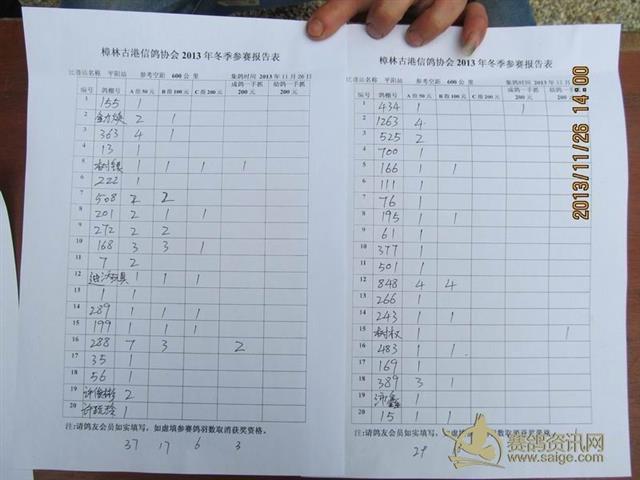 樟林古港信鸽协会 2013 年冬季参赛报告表
比赛站名称 平阳站 参考空距 600 公里 集鸽时间 2013 年 11 月 26 日
编号 鸽棚号 A 组 50 元 B 组 100 元 C 组 200 元 成鸽一手抓 200 元 幼鸽一手抓 200 元
1 155 1
2 2 1
3 363 4 1
4 13 1
5 树银 1 1 1 1
6 222 1
7 508 2 2
8 201 2 1 1
9 272 2 2
10 168 3 3 1
11 7 2
12 1 1 1
13 1 1
14 289 1 1 1
15 199 1 1 1
16 288 7 3 2
17 35 1
18 56 1
19 2
20 1
注:请鸽友会员如实填写,如虚填参赛鸽羽数取消获奖资格。
37 17 6 3
樟林古港信鸽协会 2013 年冬季参赛报告表
比赛站名称 平阳站 参考空距 600 公里 集鸽时间 2013 年 11 月
编号 鸽棚号 A 组 50 元 B 组 100 元 C 组 200 元 成鸽一手抓 200 元 幼鸽一手抓 200 元
1 434 1 1
2 1263 4
3 525 2
4 700 1
5 166 1 1
6 111 1
7 76 1
8 195 1 1
9 61 1
10 377 1
11 501 1
12 848 4 4
13 266 1
14 243 1 1
15 树权 1
16 483 1 1
17 169 1
18 389 3 1
19 1
20 15 1 1
注:请鸽友会员如实填写,如虚填参赛鸽羽数取消获奖资格。
29
2013/11/26 14:00
赛鸽资讯网
www.saige.com